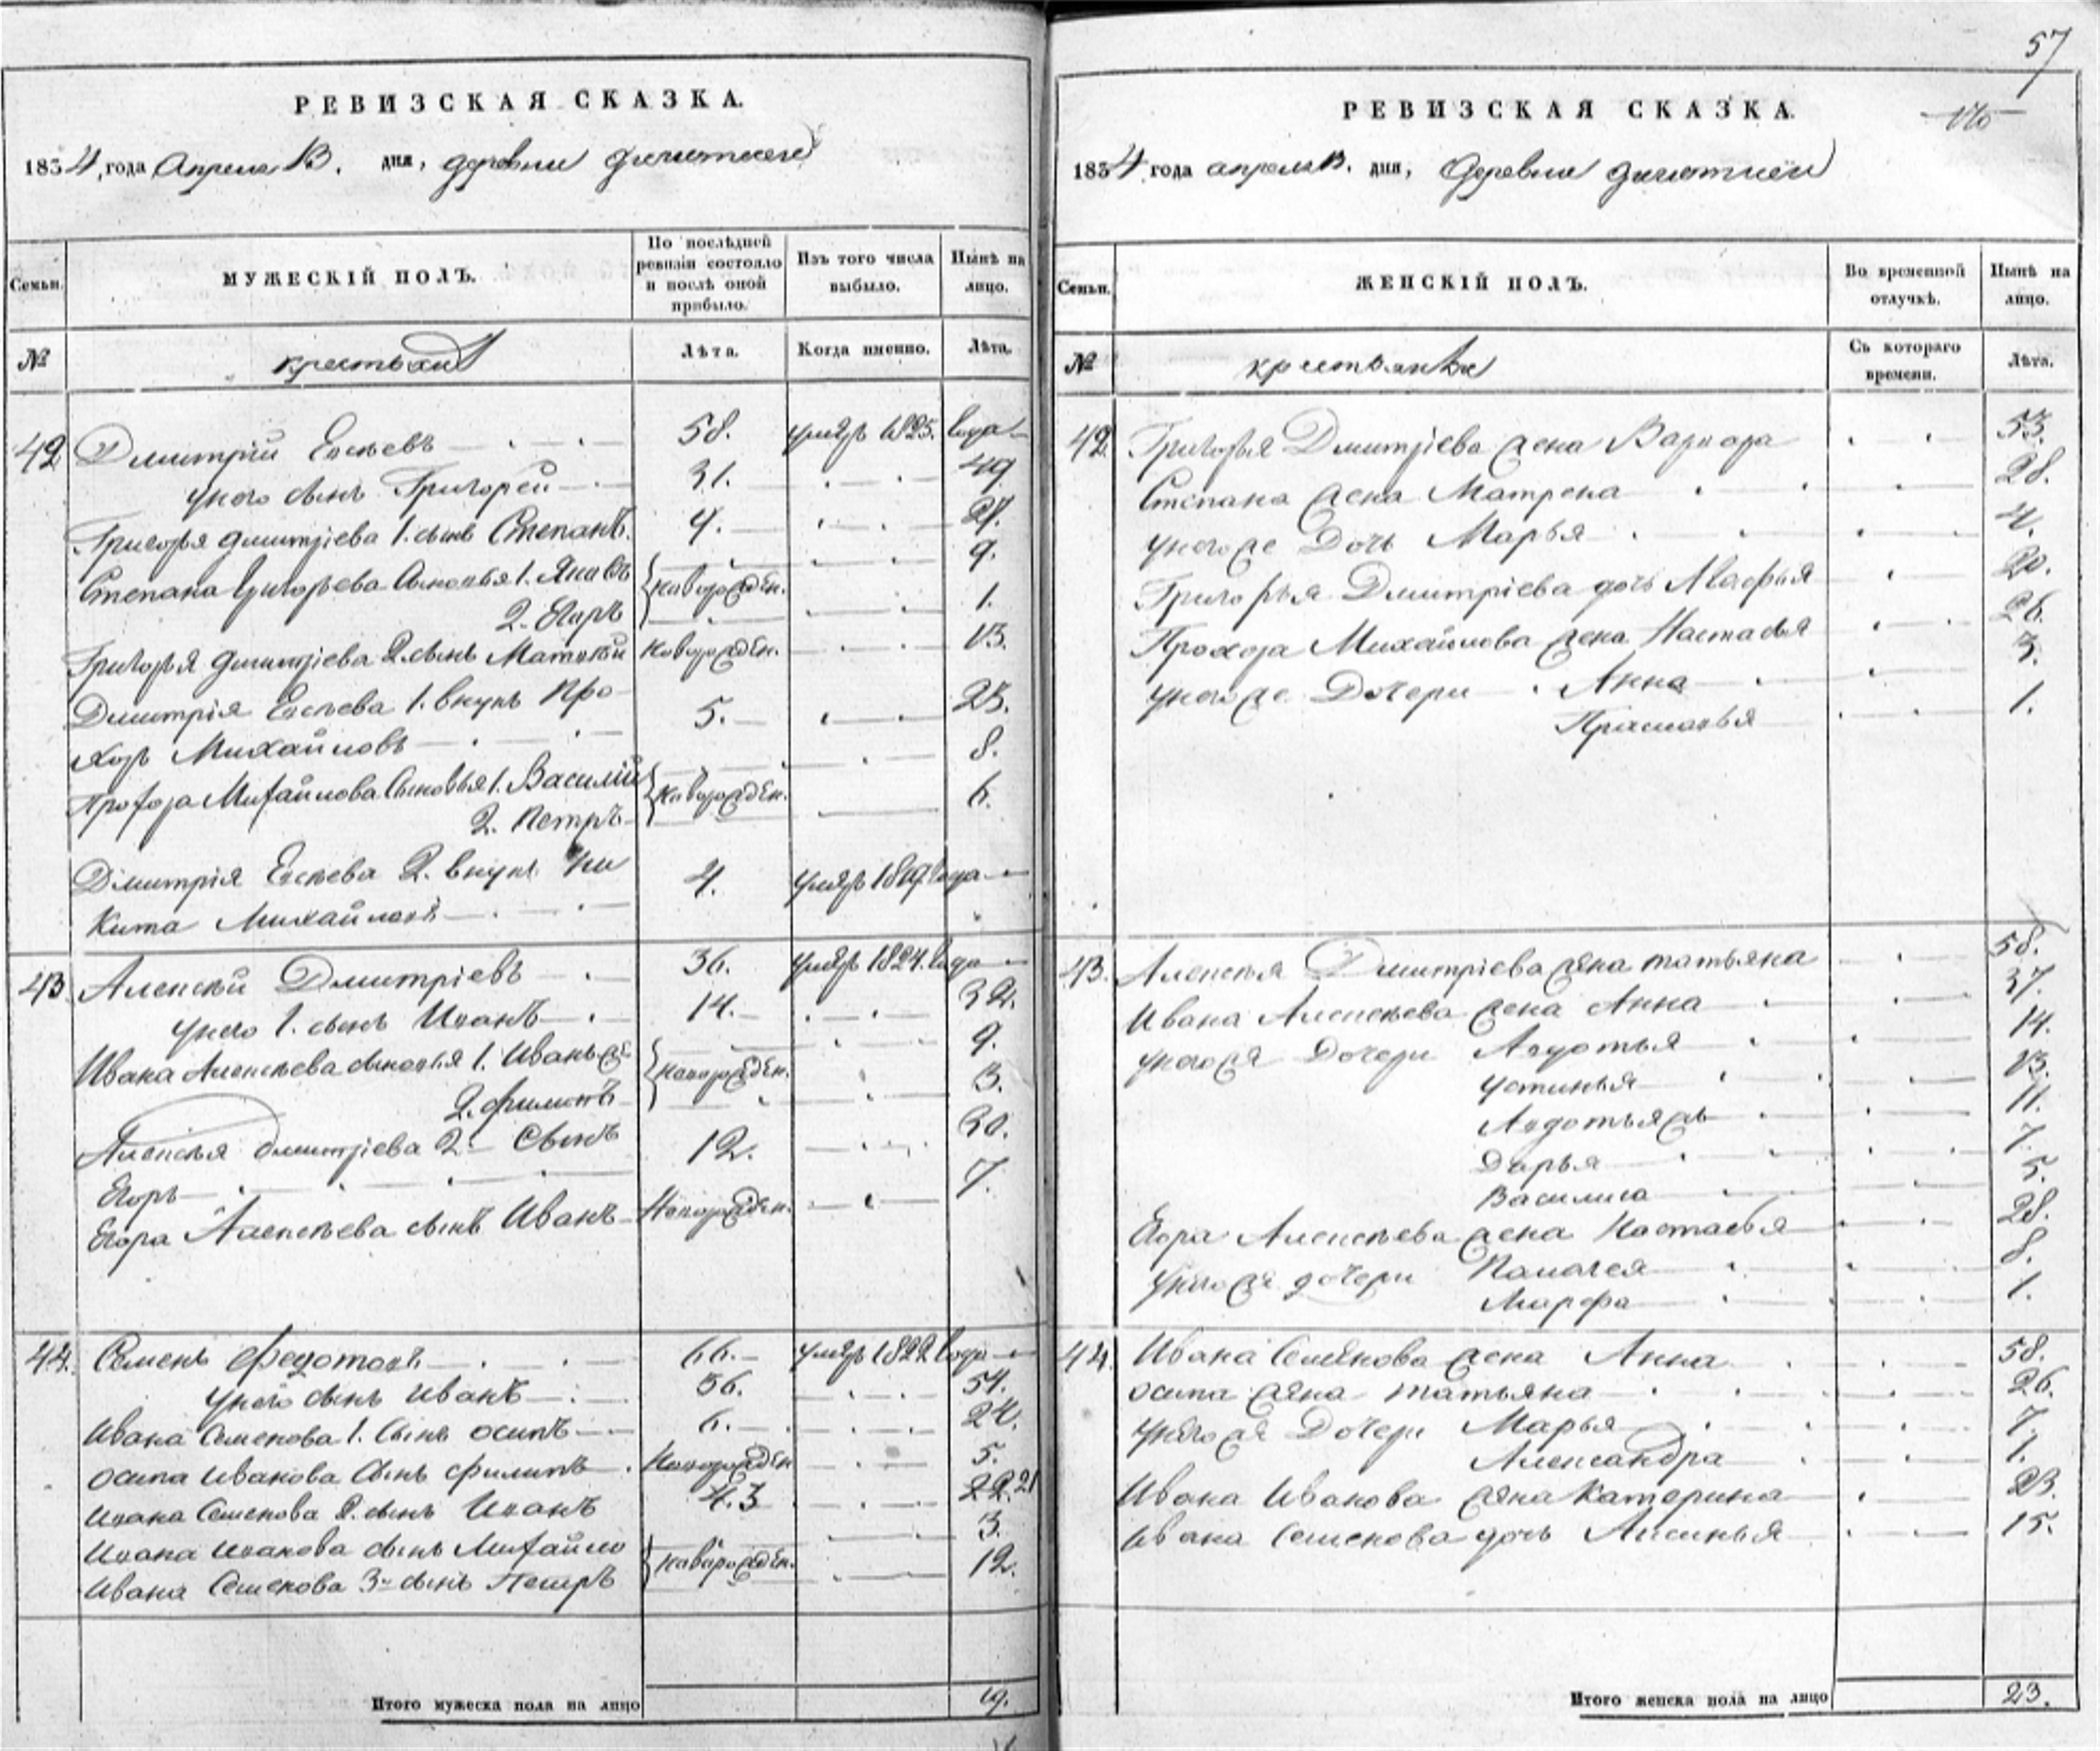 РЕВИЗСКАЯ СКАЗКА.
1834, года Апреля 13. дня, деревни
Семьи.
МУЖЕСКІЙ ПОЛЪ.
По послѣдней ревизіи состояло и послѣ оной прибыло.
Изъ того числа выбыло.
Нынѣ на лицо.
№
крестьяне
Лѣта.
Когда именно.
Лѣта.
42 Дмитрій Евсѣевъ 58. умеръ 1825. года
у него сынъ Григорей 31. 49.
Григорья дмитріева 1. сынъ Степанъ. 27.
Степана Григорьева Сыновья 1. Яковъ новорожден. 9.
2. Егоръ 1.
Григорья дмитріева 2. сынъ Матвѣй новорожден. 13.
Дмитрія Евсѣева 1. внукъ Про 5. 23.
хоръ Михайловъ
Прохора Михайлова Сыновья 1. Василій новорожден. 8.
2. Петръ 6.
Дімитрія Евсѣева 2. внукъ Ни 4. умеръ 1819. года
кита Михайловъ
43. Алексѣй Дмитріевъ 36. умеръ 1824. года
у него 1. сынъ Иванъ 14. 32.
Ивана Алексѣева сыновья 1. Иванъ новорожден. 9.
2. Филипъ 3.
Алексѣя дмитріева 2. Сынъ 12. 30.
Егоръ
Егора Алексѣева сынъ Иванъ новорожден. 7.
44. Семенъ Федотовъ 66. умеръ 1822. года
у него сынъ Иванъ 36. 54.
Ивана Семенова 1. Сынъ осипъ 6. 24.
осипа иванова Сынъ филипъ новорожден 5.
ивана Семенова 2. сынъ Иванъ 4. 3 22. 21
ивана иванова сынъ Михайло новорожден. 3.
ивана Семенова 3 сынъ Петръ 12.
Итого мужеска пола на лицо 19.
57
РЕВИЗСКАЯ СКАЗКА.
1834 года апреля 13. дня, деревни
Семьи.
ЖЕНСКІЙ ПОЛЪ.
Во временной отлучкѣ.
Нынѣ на лицо.
№
крестьянки
Съ котораго времени.
Лѣта.
42. Григорья Дмитріева жена Варвара 53.
Степана жена Матрена 28.
у него же Дочь Марья 4.
Григорья Дмитріева дочь Марфья 20.
Прохора Михайлова жена Настасья 26.
у него же Дочери Анна 3.
Прасковья 1.
43. Алексѣя Дмитріева жена татьяна 58.
Ивана Алексѣева жена Анна 37.
у него же Дочери Авдотья 14.
Устинья 13.
Авдотья жъ 11.
Дарья 7.
Василиса 5.
Егора Алексѣева жена Настасья 28.
у него же дочери Палагея 8.
Марфа 1.
44. Ивана Семенова жена Анна 58.
осипа жена татьяна 26.
у него же Дочери Марья 7.
Александра 1.
Ивана Иванова жена Катерина 23.
ивана Семенова дочь Аксинья 15.
Итого женска пола на лицо 23.